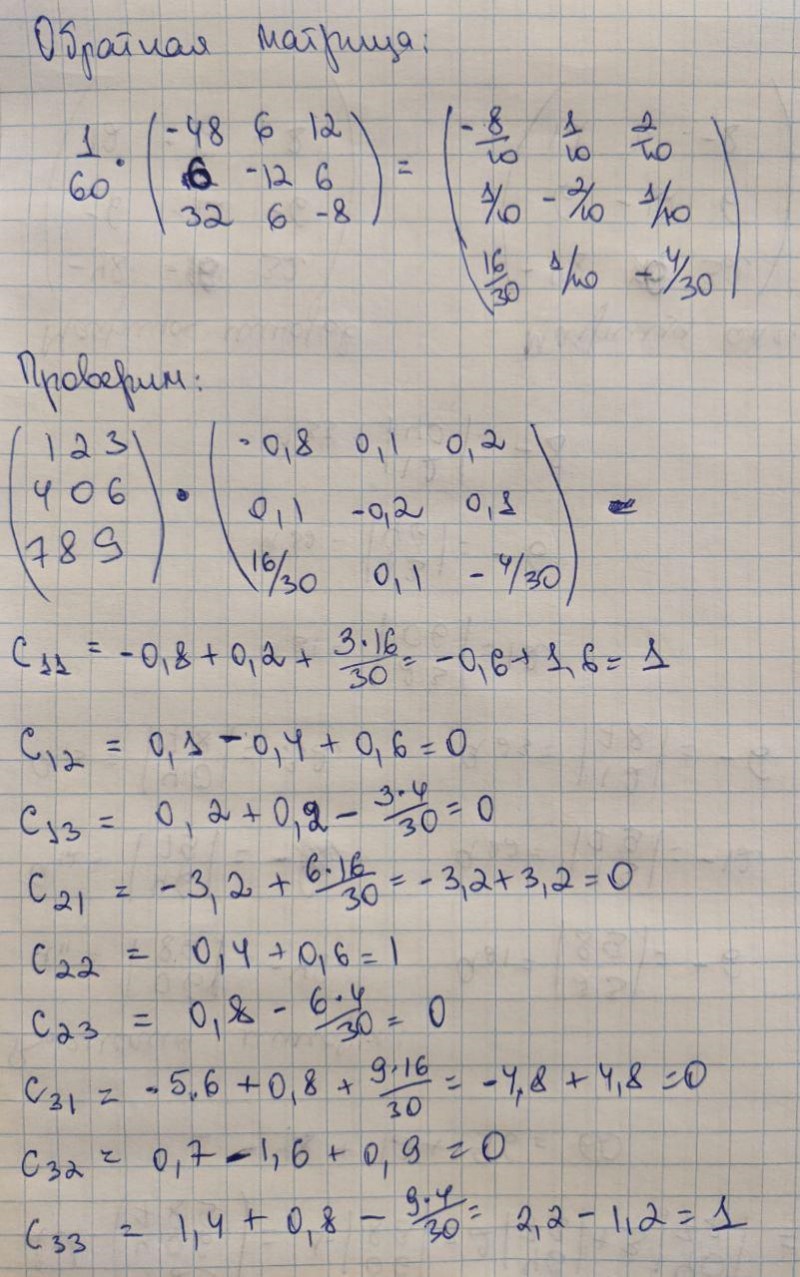 Обратная матрица:
1/60 · (-48 6 12 = (-8/10 1/10 2/10
6 -12 6 1/10 -2/10 1/10
32 6 -8) 16/30 1/10 -4/30)
Проверим:
(1 2 3 · (-0,8 0,1 0,2
4 0 6 0,1 -0,2 0,1 =
7 8 9) 16/30 0,1 -4/30)
C11 = -0,8 + 0,2 + 3·16/30 = -0,6 + 1,6 = 1
C12 = 0,1 - 0,4 + 0,6 = 0
C13 = 0,2 + 0,2 - 3·4/30 = 0
C21 = -3,2 + 6·16/30 = -3,2 + 3,2 = 0
C22 = 0,4 + 0,6 = 1
C23 = 0,8 - 6·4/30 = 0
C31 = -5,6 + 0,8 + 9·16/30 = -4,8 + 4,8 = 0
C32 = 0,7 - 1,6 + 0,9 = 0
C33 = 1,4 + 0,8 - 9·4/30 = 2,2 - 1,2 = 1